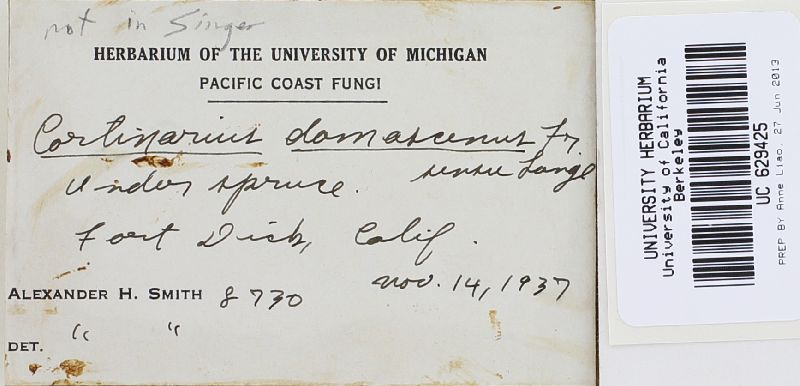 not in Singer
HERBARIUM OF THE UNIVERSITY OF MICHIGAN
PACIFIC COAST FUNGI
Cortinarius damascenus Fr.
sensu Lange
under spruce.
Fort Dick, Calif.
Nov. 14, 1937
ALEXANDER H. SMITH 8730
DET. " "
UNIVERSITY HERBARIUM
University of California
Berkeley
UC 629425
PREP BY Anne Liao. 27 Jun 2013